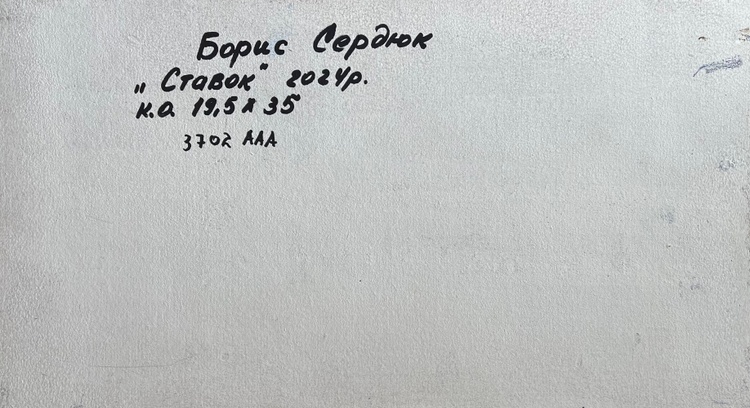 Борис Сердюк
„Ставок" 2024р.
к.о. 19,5 х 35
3702 ААА